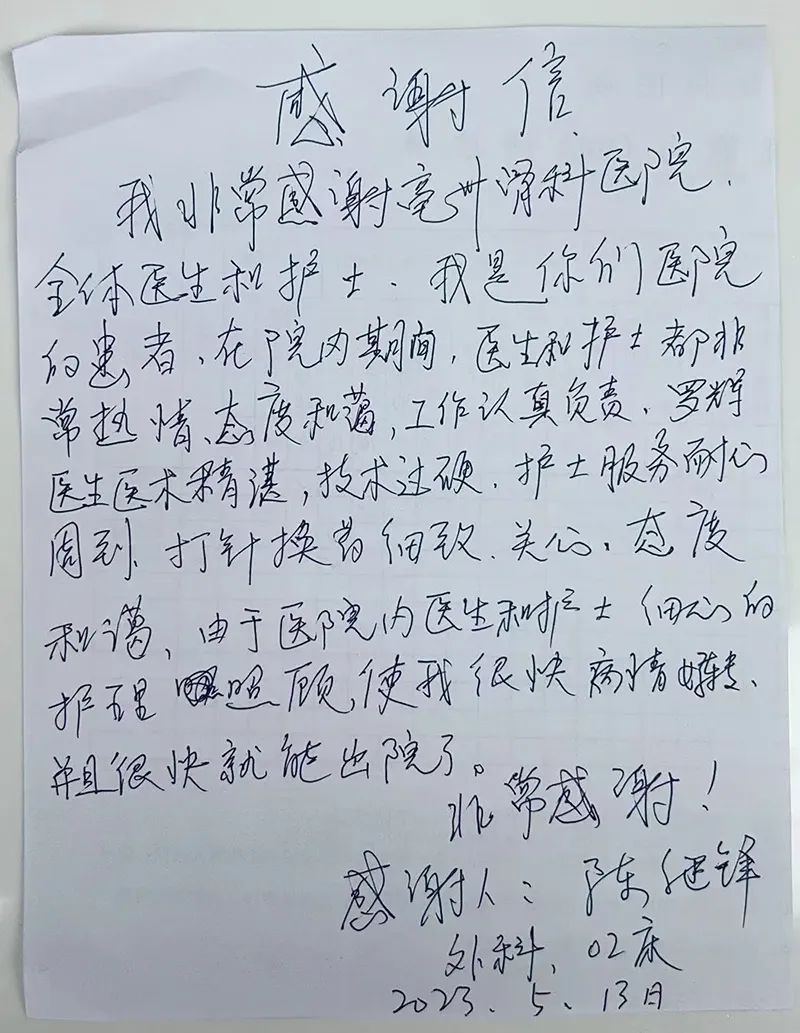 感谢信
我非常感谢亳州肾科医院.
全体医生和护士. 我是你们医院
的患者、在院内期间, 医生和护士都非
常热情、态度和蔼, 工作认真负责. 罗辉
医生医术精湛, 技术过硬. 护士服务耐心
周到. 打针换药细致. 关心. 态度
和蔼, 由于医院内医生和护士细心的
护理照顾, 使我很快病情好转、
并且很快就能出院了。
非常感谢!
感谢人: 陈继锋
外科、02床
2023. 5. 13日